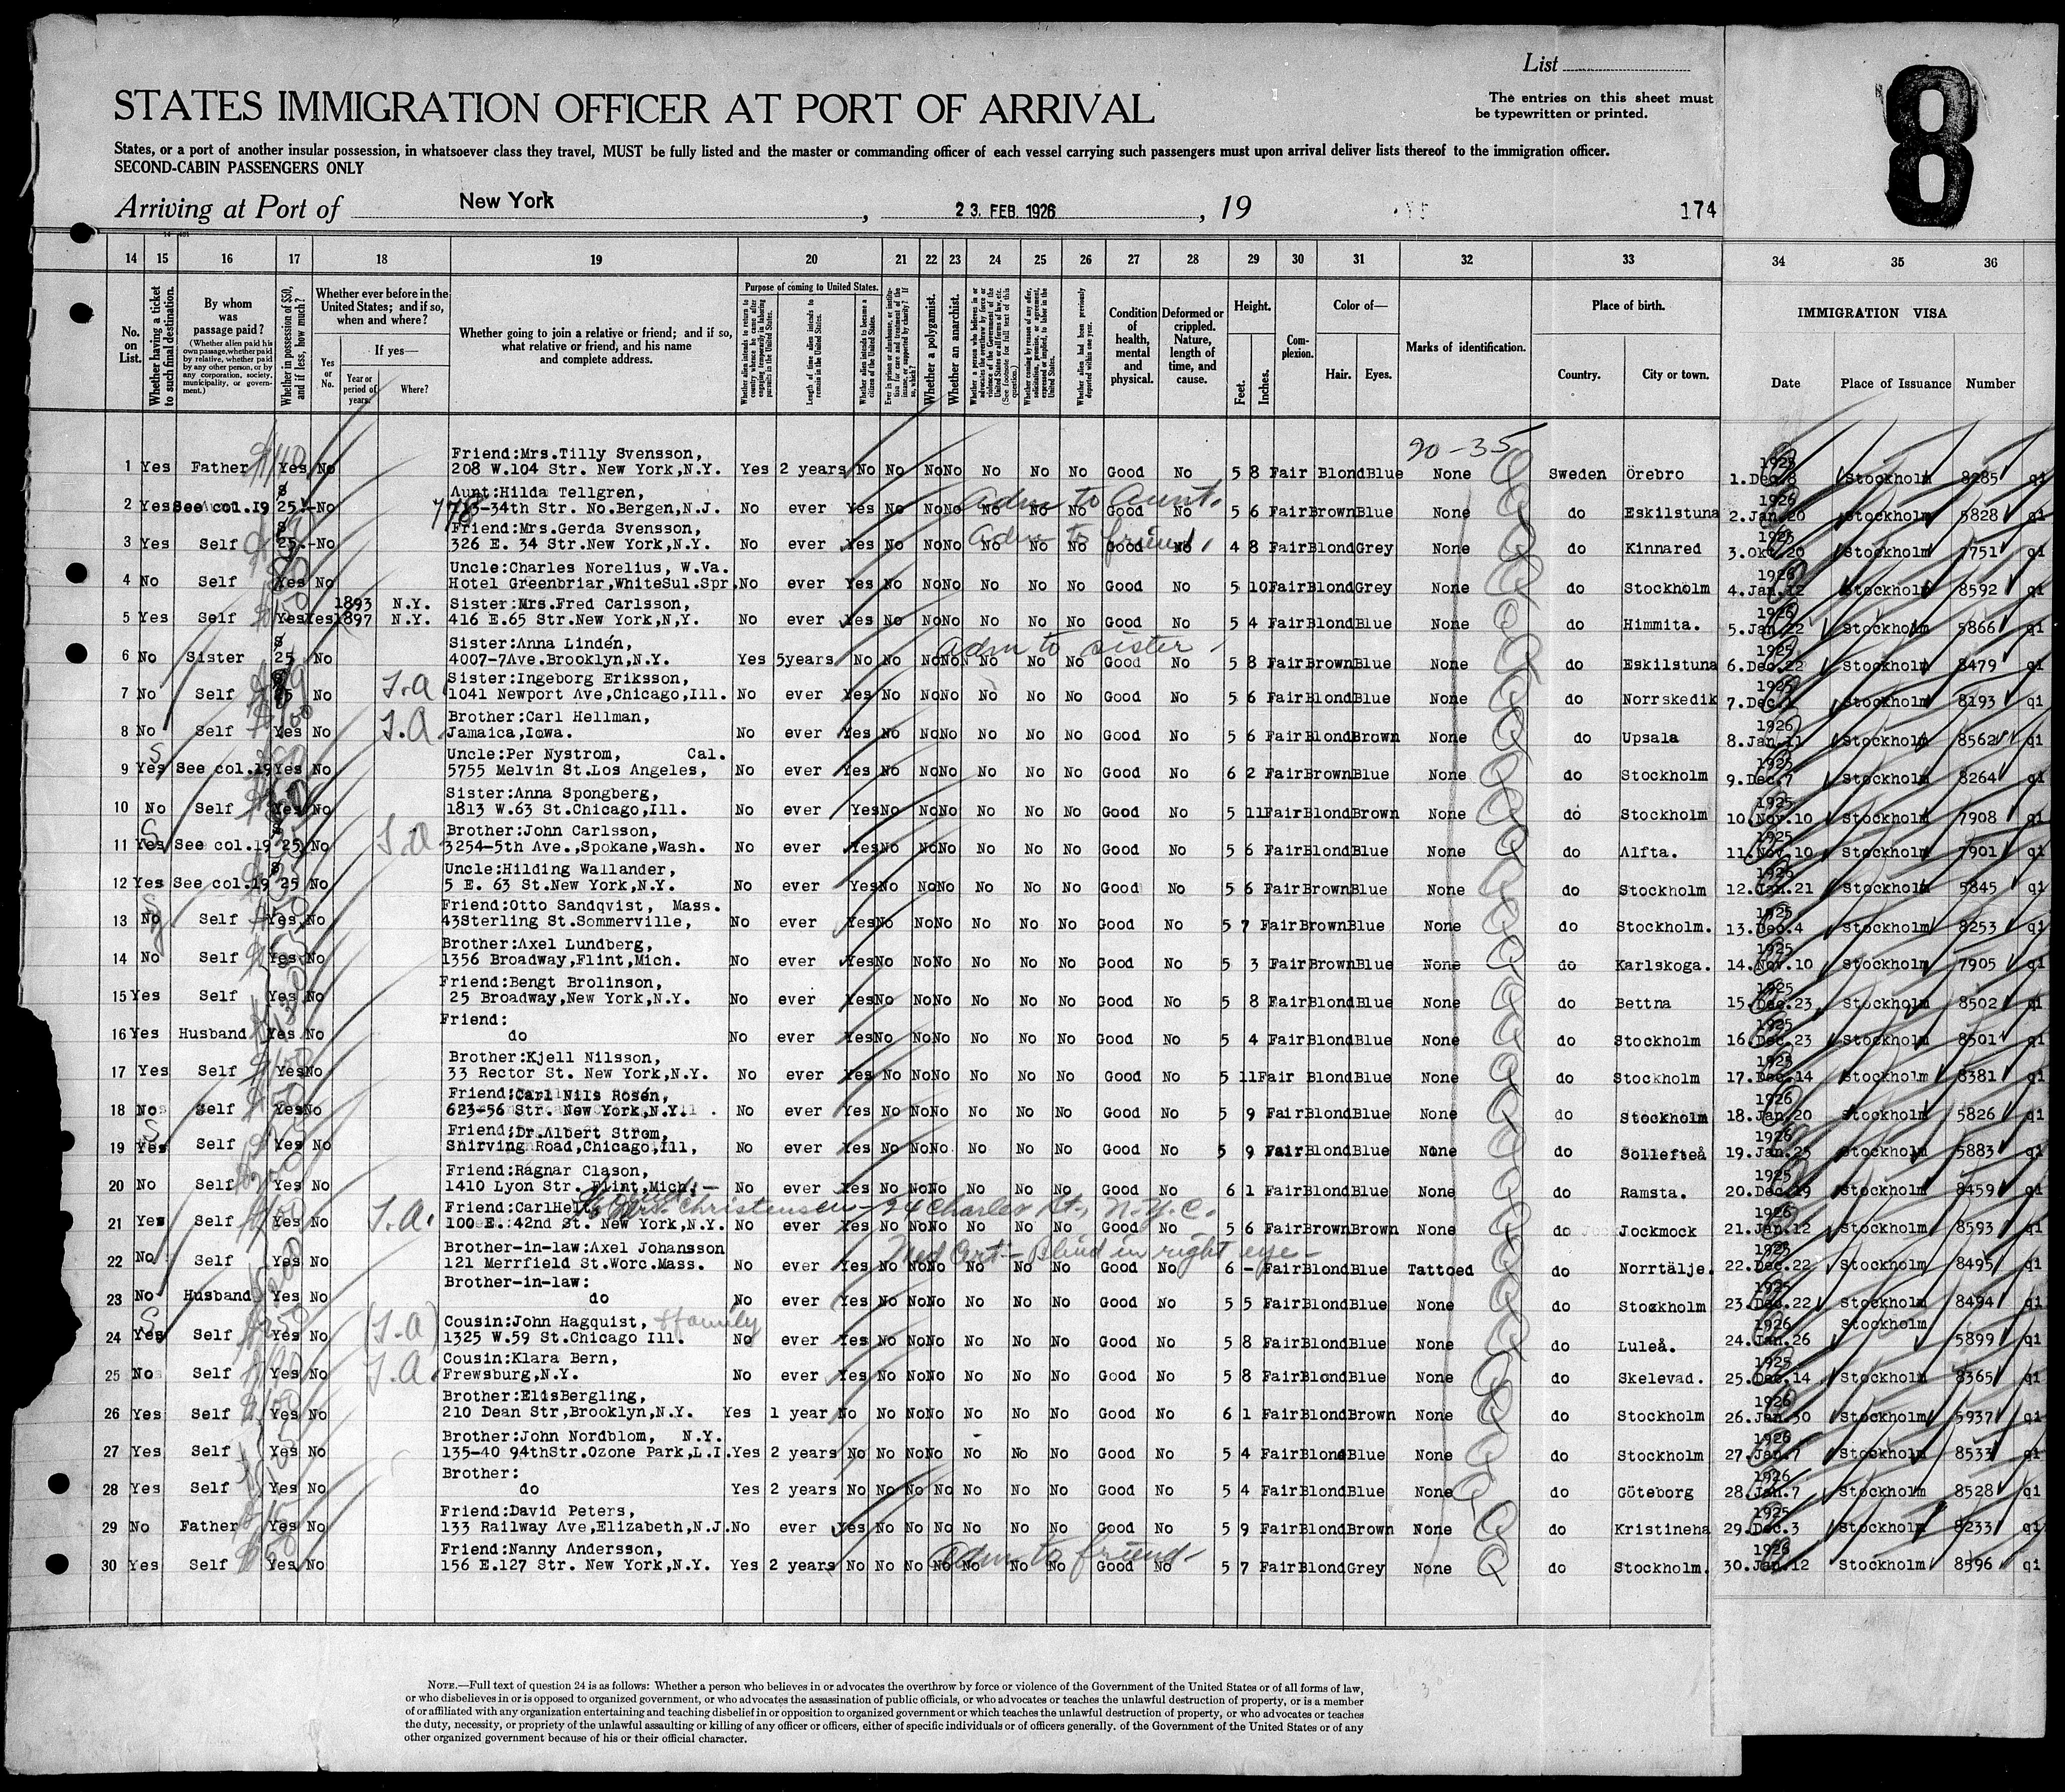 List
The entries on this sheet must
be typewritten or printed.
8
STATES IMMIGRATION OFFICER AT PORT OF ARRIVAL
States, or a port of another insular possession, in whatsoever class they travel, MUST be fully listed and the master or commanding officer of each vessel carrying such passengers must upon arrival deliver lists thereof to the immigration officer.
SECOND-CABIN PASSENGERS ONLY
Arriving at Port of New York, 23. FEB. 1926, 19 174
14 15 16 17 18 19 20 21 22 23 24 25 26 27 28 29 30 31 32 33 34 35 36
No. on List.
Whether having a ticket to such final destination.
By whom was passage paid?
(Whether alien paid his own passage, whether paid by relative, whether paid by any other person, or by any corporation, society, municipality, or government.)
Whether in possession of $50, and if less, how much?
Whether ever before in the United States; and if so, when and where?
Yes or No.
If yes—
Year or period of years.
Where?
Whether going to join a relative or friend; and if so, what relative or friend, and his name and complete address.
Purpose of coming to United States.
Whether alien intends to return to country whence he came after engaging temporarily in laboring pursuits in the United States.
Length of time alien intends to remain in the United States.
Whether alien intends to become a citizen of the United States.
Whether a polygamist.
Whether an anarchist.
Condition of health, mental and physical.
Deformed or crippled. Nature, length of time, and cause.
Height.
Feet. Inches.
Complexion.
Color of—
Hair. Eyes.
Marks of identification.
Place of birth.
Country. City or town.
IMMIGRATION VISA
Date Place of Issuance Number
20-35
1 Yes Father Yes No Friend:Mrs.Tilly Svensson,
208 W.104 Str. New York,N.Y. Yes 2 years No No No No No No No Good No 5 8 Fair Blond Blue None Sweden Örebro 1. Dec.8 1925 Stockholm 8285 qi
2 Yes See col.19 25.- No Aunt:Hilda Tellgren,
34th Str. No.Bergen,N.J. No ever Yes No No No No No No Good No 5 6 Fair Brown Blue None do Eskilstuna 2. Jan.20 1926 Stockholm 5828 qi
adm to Aunt.
3 Yes Self 25.- No Friend:Mrs.Gerda Svensson,
326 E. 34 Str.New York,N.Y. No ever Yes No No No No No No Good No 4 8 Fair Blond Grey None do Kinnared 3. Okt.20 1925 Stockholm 7751 qi
adm to friend.
4 No Self Yes No Uncle:Charles Norelius, W.Va.
Hotel Greenbriar,WhiteSul.Spr. No ever Yes No No No No No No Good No 5 10 Fair Blond Grey None do Stockholm 4. Jan.12 1926 Stockholm 8592 qi
5 Yes Self Yes Yes 1893 N.Y. 1897 N.Y. Sister:Mrs.Fred Carlsson,
416 E.65 Str.New York,N,Y. No ever Yes No No No No No No Good No 5 4 Fair Blond Blue None do Himmita. 5. Jan.22 1926 Stockholm 5866 qi
6 No Sister 25 No Sister:Anna Lindén,
4007-7Ave.Brooklyn,N.Y. Yes 5years No No No No No No No Good No 5 8 Fair Brown Blue None do Eskilstuna 6. Dec.22 1925 Stockholm 8479 qi
adm to sister
7 No Self No S.A. Sister:Ingeborg Eriksson,
1041 Newport Ave,Chicago,Ill. No ever Yes No No No No No No Good No 5 6 Fair Blond Blue None do Norrskedik 7. Dec. 1925 Stockholm 8193 qi
8 No Self Yes No S.A. Brother:Carl Hellman,
Jamaica,Iowa. No ever Yes No No No No No No Good No 5 6 Fair Blond Brown None do Upsala 8. Jan.11 1926 Stockholm 8562 qi
9 Yes See col.19 Yes No Uncle:Per Nystrom, Cal.
5755 Melvin St.Los Angeles, No ever Yes No No No No No No Good No 6 2 Fair Brown Blue None do Stockholm 9. Dec.7 1925 Stockholm 8264 qi
10 No Self Yes No Sister:Anna Spongberg,
1813 W.63 St.Chicago,Ill. No ever Yes No No No No No No Good No 5 11 Fair Blond Brown None do Stockholm 10. Nov.10 1925 Stockholm 7908 qi
11 Yes See col.19 25 No S.A. Brother:John Carlsson,
3254-5th Ave.,Spokane,Wash. No ever Yes No No No No No No Good No 5 6 Fair Blond Blue None do Alfta. 11. Nov.10 1925 Stockholm 7901 qi
12 Yes See col.19 25 No Uncle:Hilding Wallander,
5 E. 63 St.New York,N.Y. No ever Yes No No No No No No Good No 5 6 Fair Brown Blue None do Stockholm 12. Jan.21 1926 Stockholm 5845 qi
13 No Self Yes No Friend:Otto Sandqvist, Mass.
43Sterling St.Sommerville, No ever Yes No No No No No No Good No 5 7 Fair Brown Blue None do Stockholm. 13. Dec.4 1925 Stockholm 8253 qi
14 No Self Yes No Brother:Axel Lundberg,
1356 Broadway,Flint,Mich. No ever Yes No No No No No No Good No 5 3 Fair Brown Blue None do Karlskoga. 14. Nov.10 1925 Stockholm 7905 qi
15 Yes Self Yes No Friend:Bengt Brolinson,
25 Broadway,New York,N.Y. No ever Yes No No No No No No Good No 5 8 Fair Blond Blue None do Bettna 15. Dec.23 1925 Stockholm 8502 qi
16 Yes Husband Yes No Friend:
do No ever Yes No No No No No No Good No 5 4 Fair Blond Blue None do Stockholm 16. Dec.23 1925 Stockholm 8501 qi
17 Yes Self Yes No Brother:Kjell Nilsson,
33 Rector St. New York,N.Y. No ever Yes No No No No No No Good No 5 11 Fair Blond Blue None do Stockholm 17. Dec.14 1925 Stockholm 8381 qi
18 No Self Yes No Friend:Carl Nils Rosén,
623-56 Str. New York,N.Y. No ever Yes No No No No No No Good No 5 9 Fair Blond Blue None do Stockholm 18. Jan.20 1926 Stockholm 5826 qi
19 Yes Self Yes No Friend:Dr.Albert Strom,
Shirving Road,Chicago,Ill, No ever Yes No No No No No No Good No 5 9 Fair Blond Blue None do Sollefteå 19. Jan.23 1926 Stockholm 5883 qi
20 No Self Yes No Friend:Ragnar Clason,
1410 Lyon Str. Flint,Mich. No ever Yes No No No No No No Good No 6 1 Fair Blond Blue None do Ramsta. 20. Dec.19 1925 Stockholm 8459 qi
Mrs. Christensen - 24 Charles St., N.Y.C.
21 Yes Self Yes No S.A. Friend:Carl
100 E. 42nd St. New York,N.Y. No ever Yes No No No No No No Good No 5 6 Fair Brown Brown None do Jockmock 21. Jan.12 1926 Stockholm 8593 qi
22 No Self Yes No Brother-in-law:Axel Johansson
121 Merrfield St.Worc.Mass. No ever Yes No No No No No No Good No 6 - Fair Blond Blue Tattoed do Norrtälje. 22. Dec.22 1925 Stockholm 8495 qi
Med Cert - Blind in right eye -
23 No Husband Yes No Brother-in-law:
do No ever Yes No No No No No No Good No 5 5 Fair Blond Blue None do Stockholm 23. Dec.22 1925 Stockholm 8494 qi
24 Yes Self Yes No (S.A) Cousin:John Hagquist, & family
1325 W.59 St.Chicago Ill. No ever Yes No No No No No No Good No 5 8 Fair Blond Blue None do Luleå. 24. Jan.26 1926 Stockholm 5899 qi
25 No Self Yes No S.A. Cousin:Klara Bern,
Frewsburg,N.Y. No ever Yes No No No No No No Good No 5 8 Fair Blond Blue None do Skelevad. 25. Dec.14 1925 Stockholm 8365 qi
26 Yes Self Yes No Brother:ElisBergling,
210 Dean Str,Brooklyn,N.Y. Yes 1 year No No No No No No No Good No 6 1 Fair Blond Brown None do Stockholm 26. Jan.30 1926 Stockholm 5937 qi
27 Yes Self Yes No Brother:John Nordblom, N.Y.
135-40 94thStr.Ozone Park,L.I. Yes 2 years No No No No No No No Good No 5 4 Fair Blond Blue None do Stockholm 27. Jan.7 1926 Stockholm 8533 qi
28 Yes Self Yes No Brother:
do Yes 2 years No No No No No No No Good No 5 4 Fair Blond Blue None do Göteborg 28. Jan.7 1926 Stockholm 8528 qi
29 No Father Yes No Friend:David Peters,
133 Railway Ave,Elizabeth,N.J. No ever Yes No No No No No No Good No 5 9 Fair Blond Brown None do Kristineha 29. Dec.3 1925 Stockholm 8233 qi
30 Yes Self Yes No Friend:Nanny Andersson,
156 E.127 Str. New York,N.Y. Yes 2 years No No No No No No No Good No 5 7 Fair Blond Grey None do Stockholm. 30. Jan.12 1926 Stockholm 8596 qi
adm to friend-
NOTE.—Full text of question 24 is as follows: Whether a person who believes in or advocates the overthrow by force or violence of the Government of the United States or of all forms of law,
or who disbelieves in or is opposed to organized government, or who advocates the assassination of public officials, or who advocates or teaches the unlawful destruction of property, or is a member
of or affiliated with any organization entertaining and teaching disbelief in or opposition to organized government or which teaches the unlawful destruction of property, or who advocates or teaches
the duty, necessity, or propriety of the unlawful assaulting or killing of any officer or officers, either of specific individuals or of officers generally. of the Government of the United States or of any
other organized government because of his or their official character.